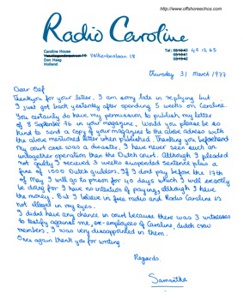 http://www.offshoreechos.com
Radio Caroline
Caroline House
18
Den Haag
Holland
Tel
Thursday 31 March 1977
Dear
Thankyou for your letter, I am sorry late in replying but
I just got back yesterday after spending 5 weeks on Caroline.
You certainly do have my permission to publish my letter
of 9 September 76 in your magazine. Would you please be so
kind to send a copy of your magazine to the above adress with
the above mentioned letter when published. Thanking you beforehand
My court case was a disaster, I have never seen such an
untogether operation than the Dutch court. Although I pleaded
not guilty I received 3 weeks suspended sentence plus a
fine of 1000 Dutch guilders. If I dont pay before the 17th
of May I will go to prison for 40 days which I will exactly
be doing for I have no intention of paying, although I have
the money. But I believe in free radio and Radio Caroline is
not illegal in my eyes.
I didnt have any chance in court because there was 3 witnesses
to testify against me, ex-employees of Caroline, dutch crew
members. I was very disappointed in them.
Once again thank you for writing
Regards
Samantha